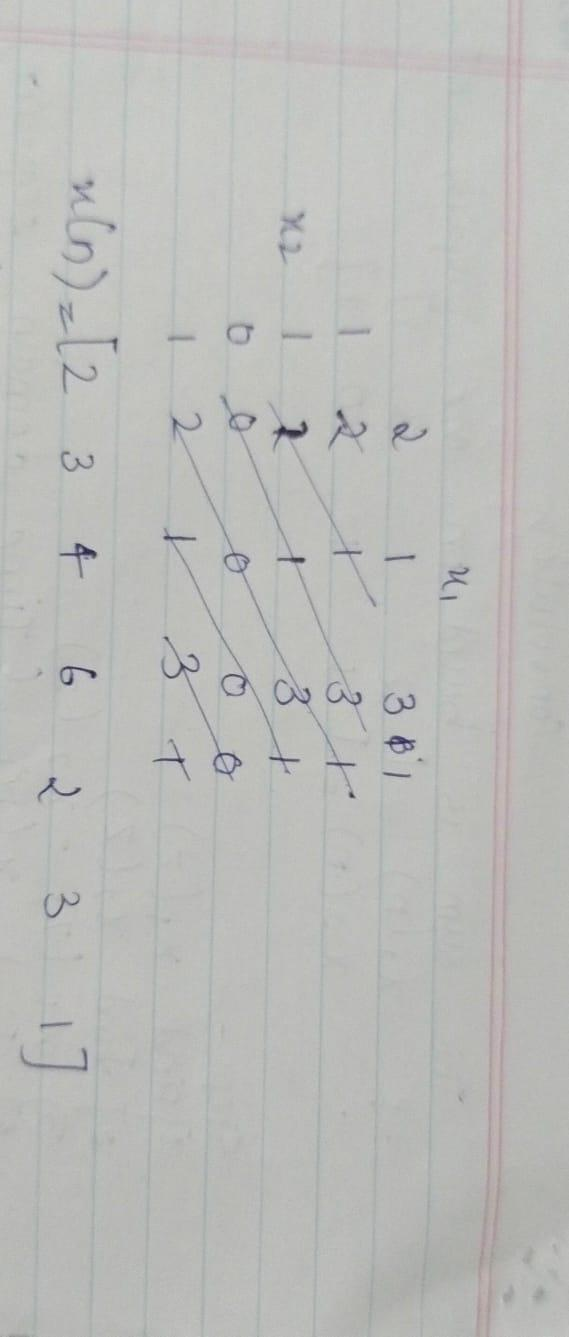 x1
2 1 3 1
1 2 1 3 1
x2 1 2 1 3 1
0 0 0 0 0
1 2 1 3 1
x(n) = [2 3 4 6 2 3 1]